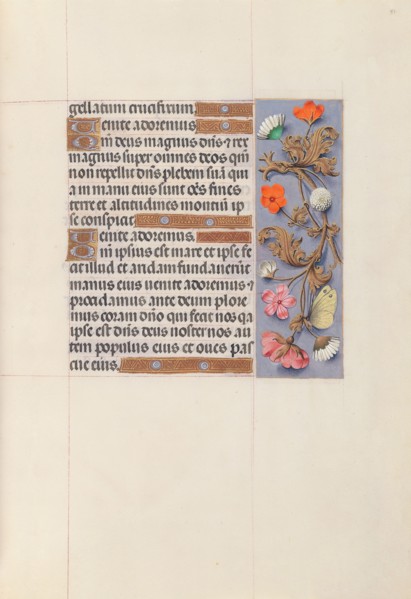 gellatum crucifixum.
Venite adoremus
Qm̄ deus magnus dn̄s ⁊ rex
magnus super omnes deos qm̄
non repellit dn̄s plebem suā qui
a in manu eius sunt oēs fines
terre et altitudines montiū ip
se conspicit
Venite adoremus.
Qm̄ ipsius est mare et ipse fe
cit illud et aridam fundaverunt
manus eius venite adoremus ⁊
procidamus ante deum plore
mus coram dn̄o qui fecit nos qa
ipse est dn̄s deus noster nos au
tem populus eius et oves pas
cue eius.